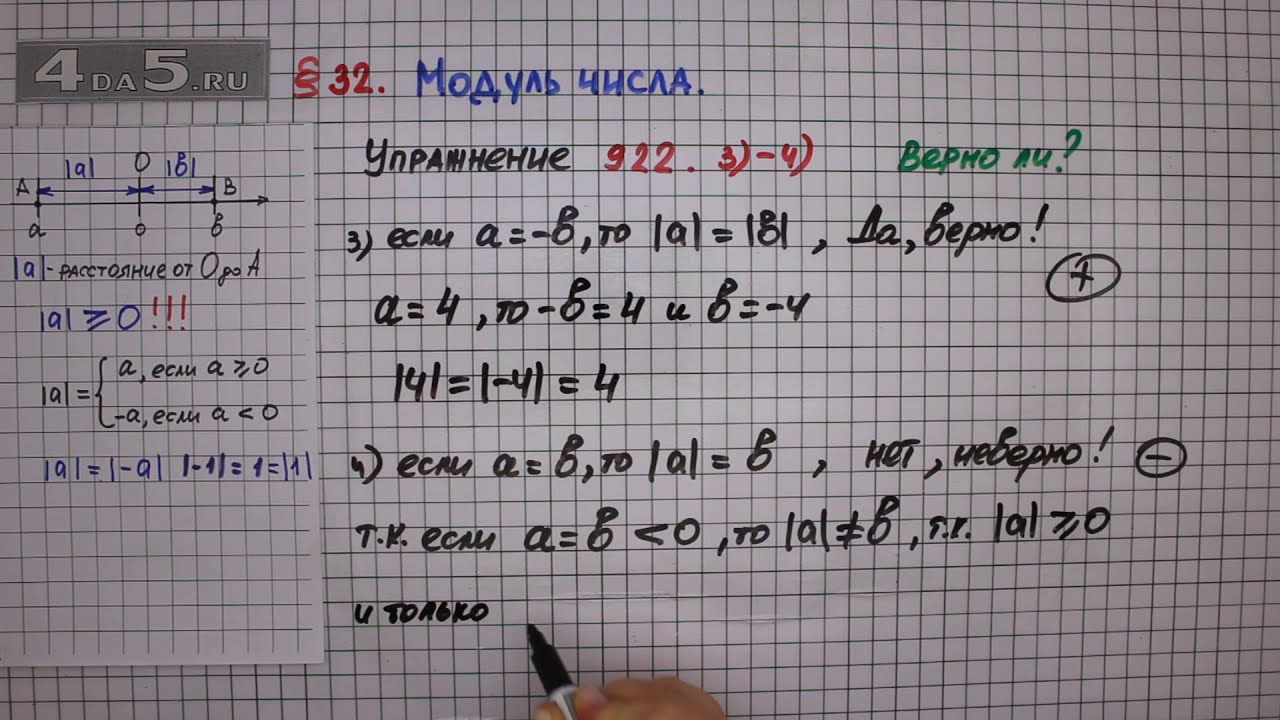 4DA5.RU
§ 32. Модуль числа.
|a| O |в|
A B
a o в
|a| - расстояние от O до A
|a| ⩾ 0 !!!
|a| = { a, если a ⩾ 0
-a, если a < 0
|a| = |-a| |-1| = 1 = |1|
Упражнение 922. 3)-4) Верно ли?
3) если a = -в, то |a| = |в| , Да, верно!
+
a = 4 , то -в = 4 и в = -4
|4| = |-4| = 4
4) если a = в, то |a| = в , нет, неверно! -
т.к. если a = в < 0 , то |a| ≠ в , т.к. |a| ⩾ 0
и только